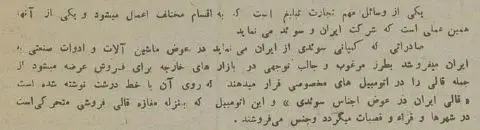 یکی از وسائل مهم تجارت تبلیغ است که به اقسام مختلف اعمال میشود و یکی از آنها
همین عملی است که شرکت ایران و سوئد می نماید
صادراتی که کمپانی سوئدی از ایران می نماید در عوض ماشین آلات و ادوات صنعتی به
ایران میفروشد بطرز مرغوب و جالب توجهی در بازار های خارجه برای فروش عرضه میشود از
جمله قالی را در اتومبیل های مخصوصی قرار میدهند که روی آن با خط درشت نوشته شده است
« قالی ایران در عوض اجناس سوئدی » و این اتومبیل که بمنزله مغازه قالی فروشی متحرکی است
در شهرها و قراء و قصبات میگردد و جنس میفروشند .